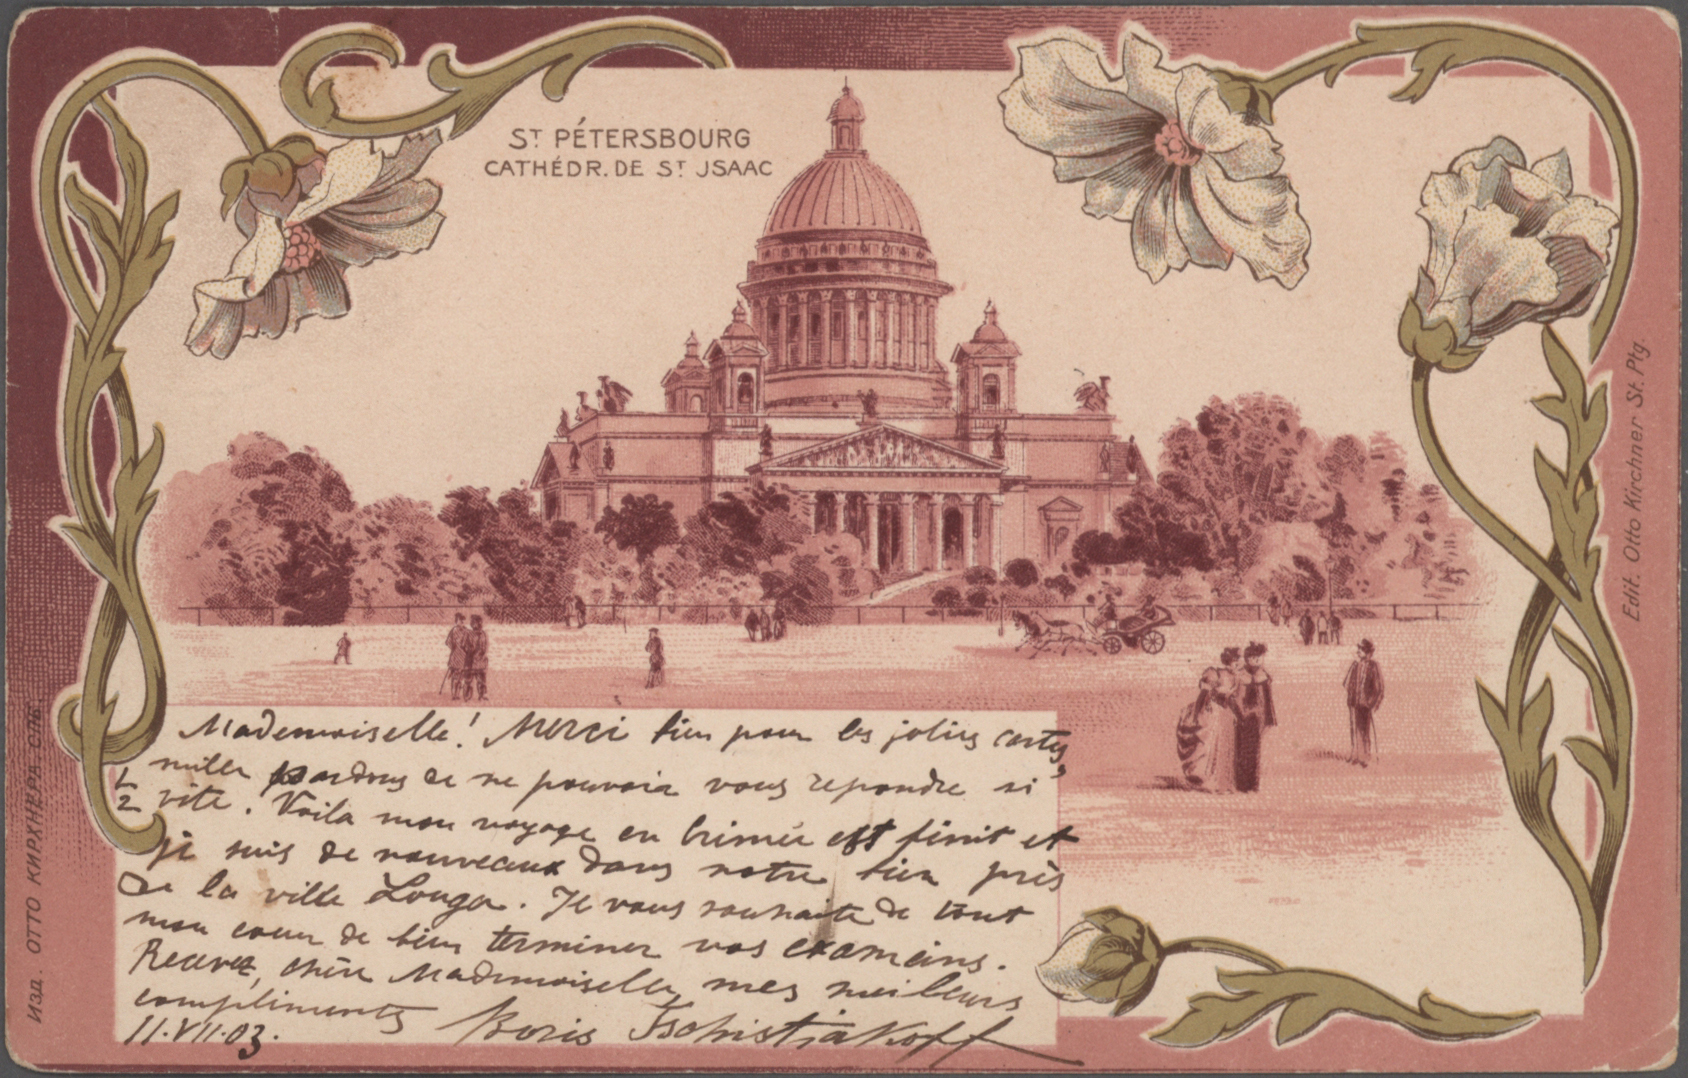 ST PÉTERSBOURG
CATHÉDR. DE ST JSAAC
Edit. Otto Kirchner St. Ptg.
Изд. ОТТО КИРХНЕРЪ СПБ.
Mademoiselle! Merci bien pour les jolies cartes,
mille pardons de ne pouvoir vous repondre si
1/2
vite. Voila mon voyage en Crimée est finit et
je suis de nouveaux dans notre bien près
de la ville Louga. Je vous souhaite de tout
mon coeur de bien terminer vos exameins.
Recevez, chère Mademoiselle, mes meilleurs
compliments Boris Tschistiakoff
11.VII.03.